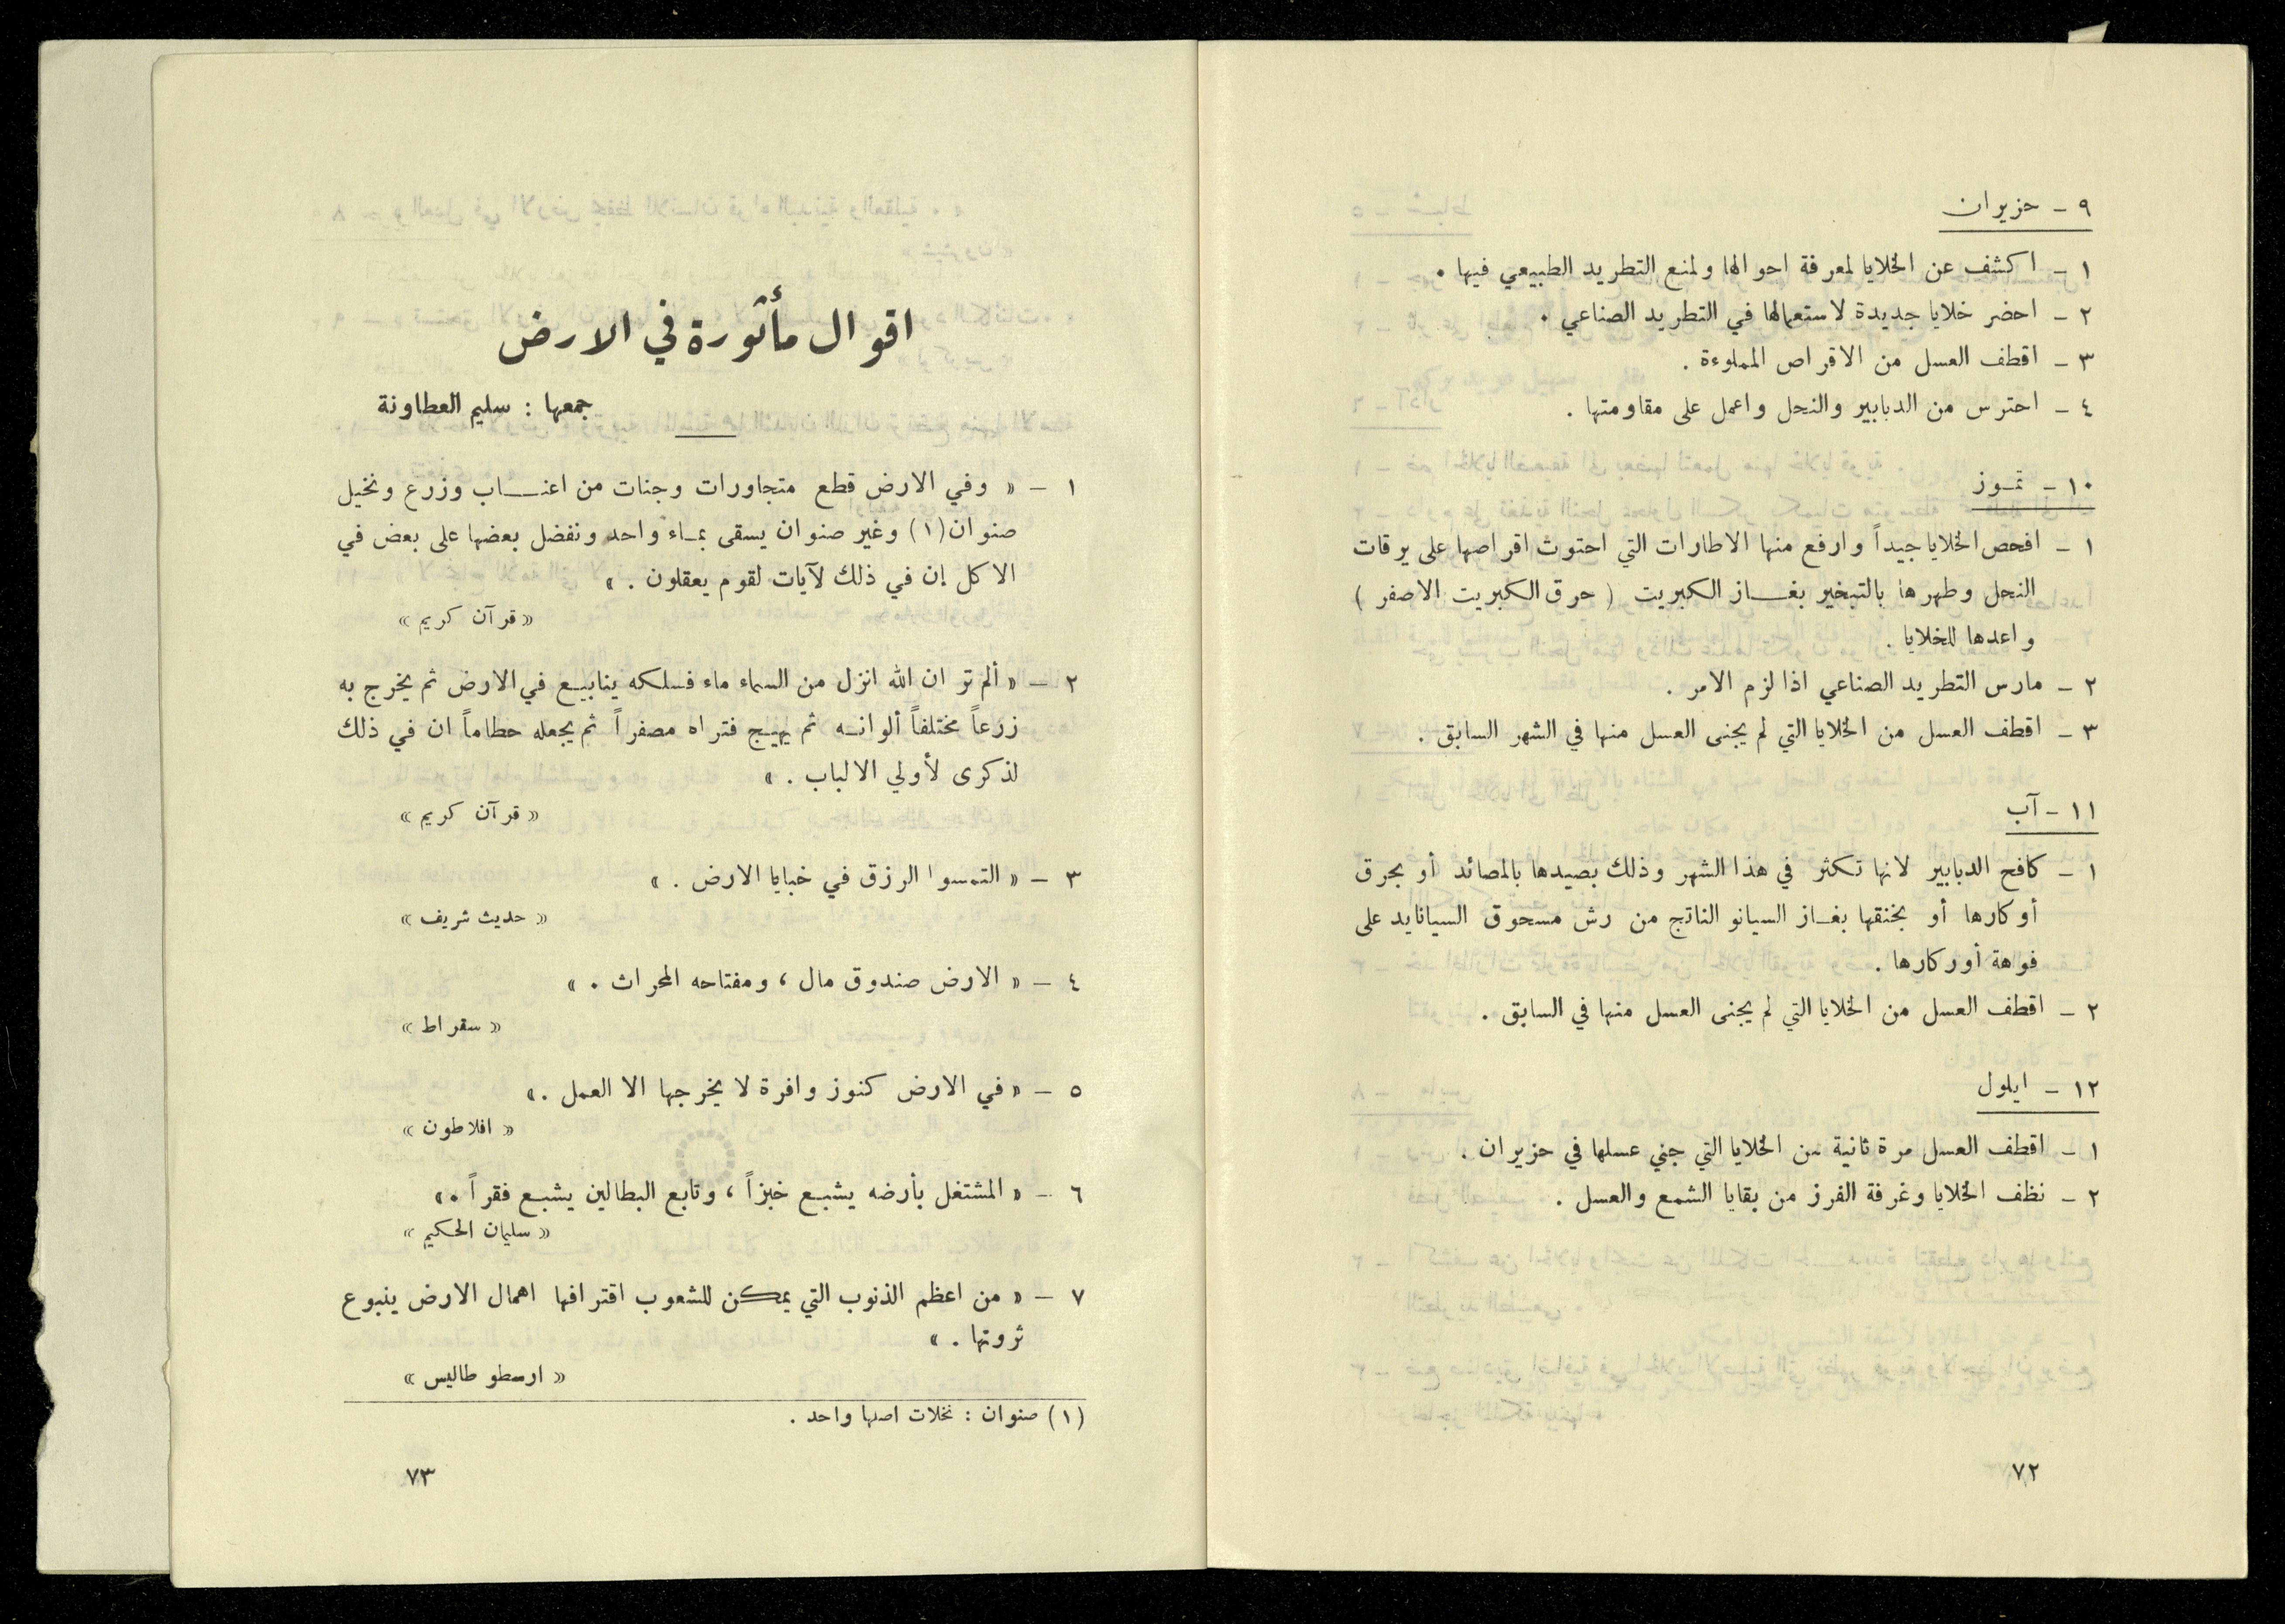 ٩ - حزيران
١ - اكشف عن الخلايا لمعرفة احوالها ولمنع التطريد الطبيعي فيها .
٢ - احضر خلايا جديدة لاستعمالها في التطريد الصناعي .
٣ - اقطف العسل من الاقراص المملوءة .
٤ - احترس من الدبابير والنحل واعمل على مقاومتها .
١٠ - تموز
١ - افحص الخلايا جيداً وارفع منها الاطارات التي احتوث اقراصها على يرقات
النحل وطهرها بالتبخير بغاز الكبريت ( حرق الكبريت الاصفر )
واعدها للخلايا .
٢ - مارس التطريد الصناعي اذا لزم الامر .
٣ - اقطف العسل من الخلايا التي لم يجنى العسل منها في الشهر السابق .
١١ - آب
١ - كافح الدبابير لانها تكثر في هذا الشهر وذلك بصيدها بالمصائد أو بحرق
أوكارها أو بخنقها بغاز السيانو الناتج من رش مسحوق السيانايد على
فوهة أوركارها .
٢ - اقطف العسل من الخلايا التي لم يجنى العسل منها في السابق .
١٢ - ايلول
١ - اقطف العسل مرة ثانية من الخلايا التي جني عسلها في حزيران .
٢ - نظف الخلايا وغرفة الفرز من بقايا الشمع والعسل .
٧٢
اقوال مأثورة في الارض
جمعها : سليم العطاونة
١ - « وفي الارض قطع متجاورات وجنات من اعناب وزرع ونخيل
صنوان (١) وغير صنوان يسقى بماء واحد ونفضل بعضها على بعض في
الاكل إن في ذلك لآيات لقوم يعقلون . »
« قرآن كريم »
٢ - « ألم تر ان الله انزل من السماء ماء فسلكه ينابيع في الارض ثم يخرج به
زرعاً مختلفاً ألوانه ثم يهيج فتراه مصفراً ثم يجعله حطاماً ان في ذلك
لذكرى لأولي الالباب . »
« قرآن كريم »
٣ - « التمسوا الرزق في خبايا الارض . »
« حديث شريف »
٤ - « الارض صندوق مال ، ومفتاحه المحراث . »
« سقراط »
٥ - « في الارض كنوز وافرة لا يخرجها الا العمل . »
« افلاطون »
٦ - « المشتغل بأرضه يشبع خبزاً ، وتابع البطالين يشبع فقراً . »
« سليمان الحكيم »
٧ - « من اعظم الذنوب التي يمكن للشعوب اقترافها اهمال الارض ينبوع
ثروتها . »
« ارسطو طاليس »
(١) صنوان : نخلات اصلها واحد .
٧٣